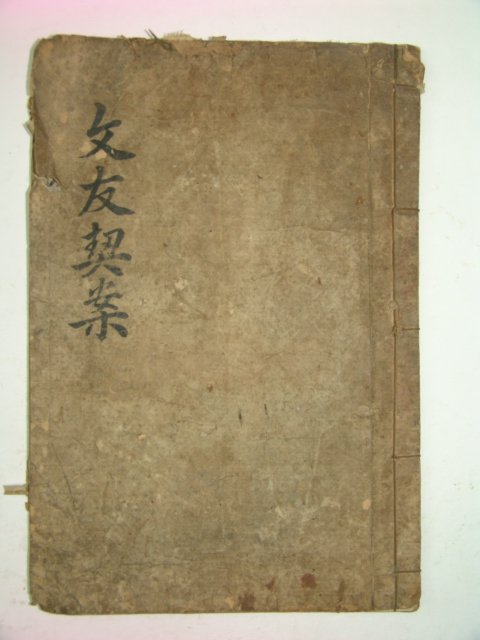 文友契案